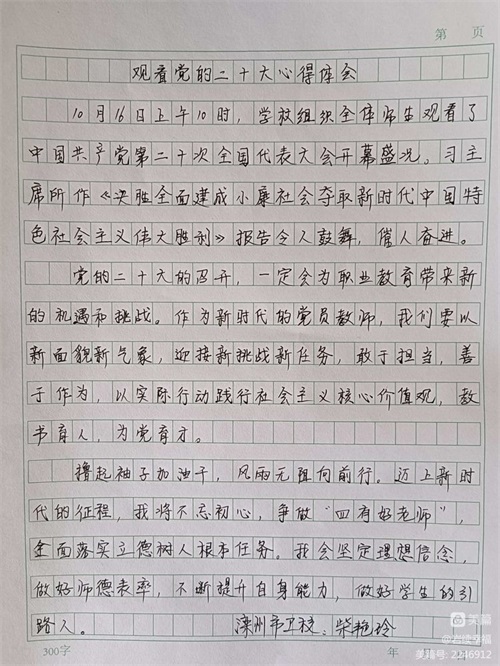 第 页
观看党的二十大心得体会
10月16日上午10时，学校组织全体师生观看了
中国共产党第二十次全国代表大会开幕盛况。习主
席所作《决胜全面建成小康社会夺取新时代中国特
色社会主义伟大胜利》报告令人鼓舞，催人奋进。
党的二十大的召开，一定会为职业教育带来新
的机遇和挑战。作为新时代的党员教师，我们要以
新面貌新气象，迎接新挑战新任务，敢于担当，善
于作为，以实际行动践行社会主义核心价值观，教
书育人，为党育才。
撸起袖子加油干，风雨无阻向前行。迈上新时
代的征程，我将不忘初心，争做“四有好老师”，
全面落实立德树人根本任务。我会坚定理想信念，
做好师德表率，不断提升自身能力，做好学生的引
路人。 滦州市卫校：柴艳玲
300字 年 月
美篇
美篇号: 2246912